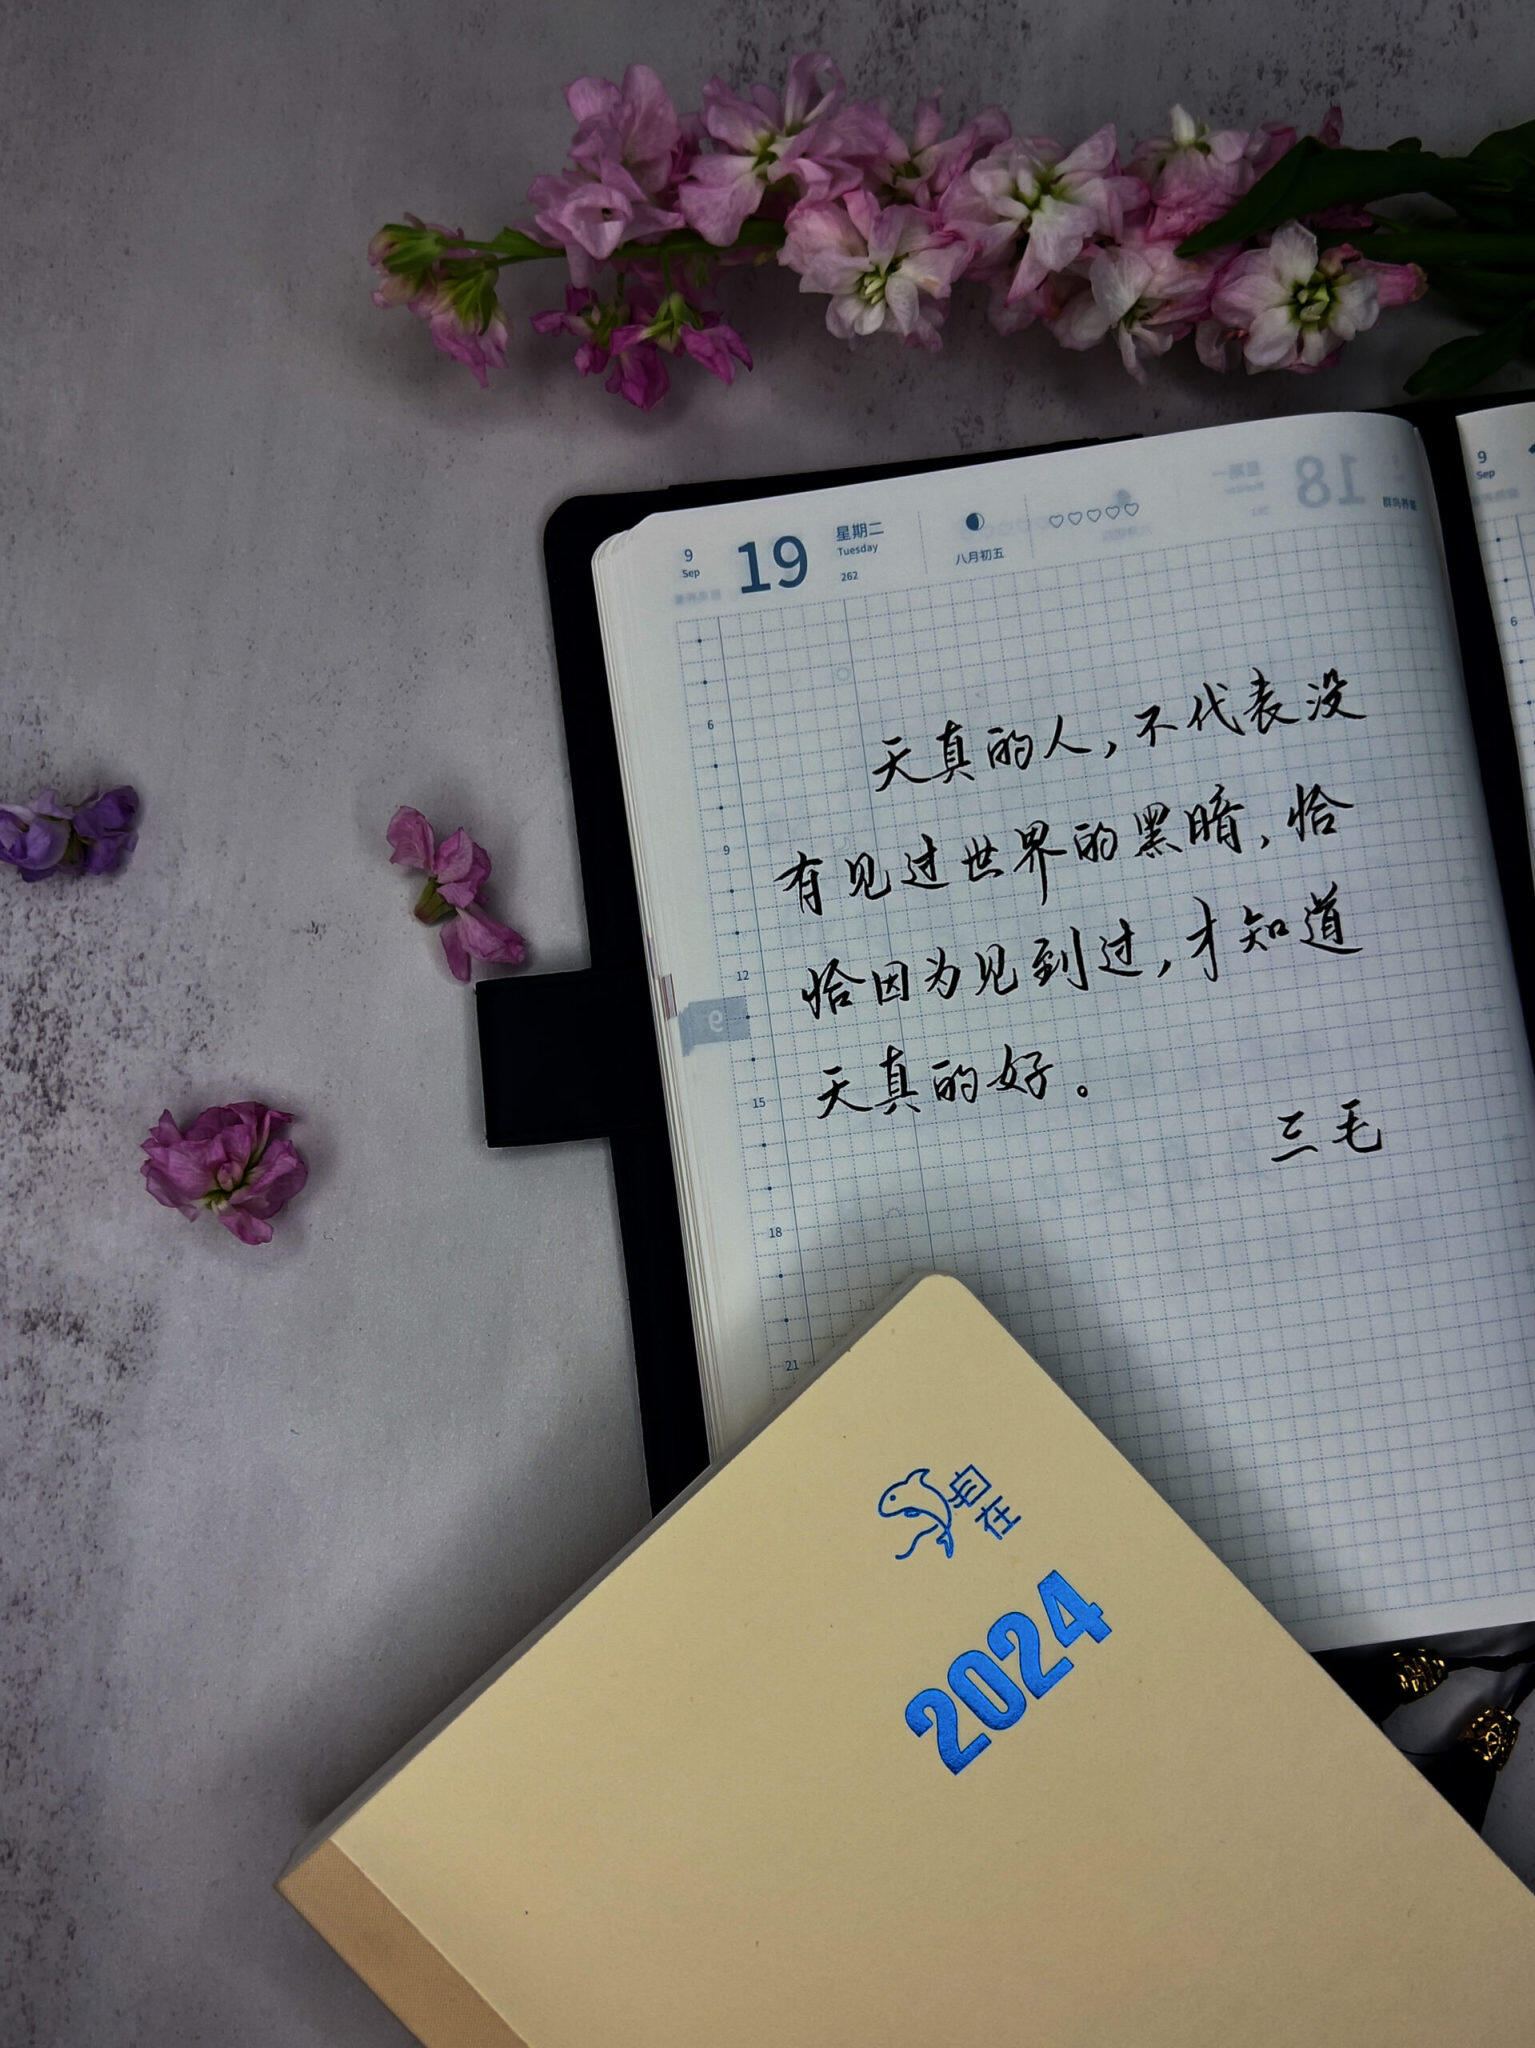 9
Sep
19
星期二
Tuesday
262
八月初五
18
9
Sep
天真的人，不代表没
有见过世界的黑暗，恰
恰因为见到过，才知道
天真的好。
三毛
6
9
12
9
15
18
21
6
自在
2024